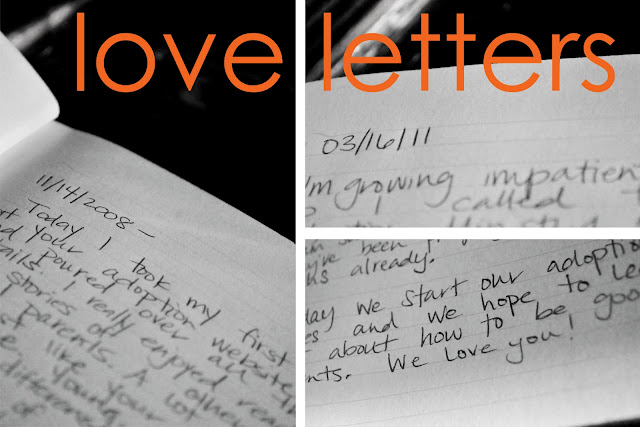 love letters
11/14/2008 -
Today I took my first
your adoption website
poured over all
I really enjoyed
stories of other
parents. A lot
like your
young.
difference
of
03/16/11
I'm growing impatient
I called
been
already.
we start our adoption
and we hope to
about how to be good
We love you!